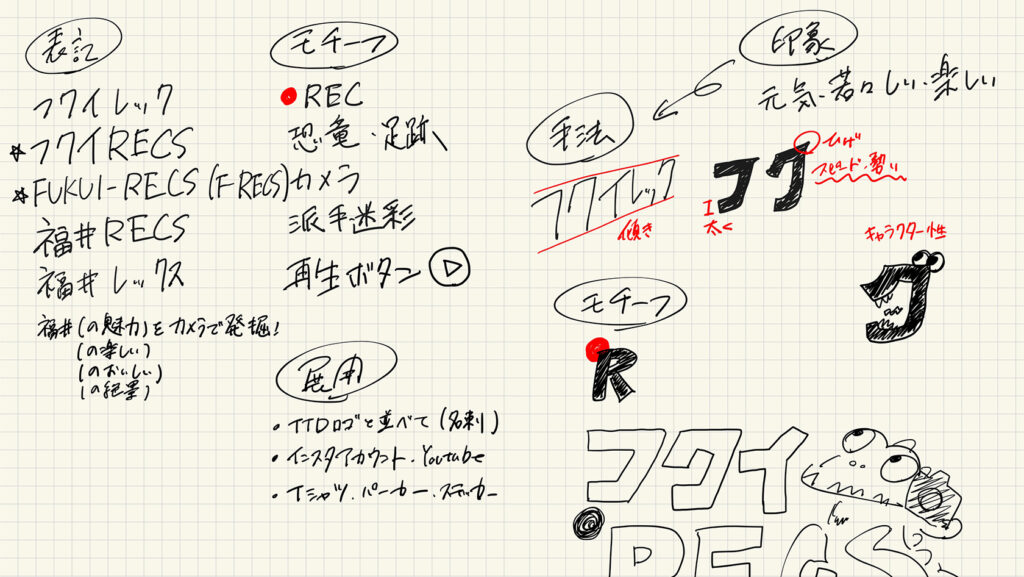 表記
フクイレック
☆フクイRECS
☆FUKUI-RECS (F-RECS)
福井RECS
福井レックス
福井(の魅力)をカメラで発掘!
(の楽しい)
(のおいしい)
(の絶景)
モチーフ
REC
恐竜・足跡
カメラ
派手迷彩
再生ボタン
展開
・TTDロゴと並べて(名刺)
・インスタアカウント・Youtube
・Tシャツ・パーカー・ステッカー
印象
元気・若々しい・楽しい
手法
フクイレック
傾き
フク
ひげ
スピード・勢い
太く
キャラクター性
ク
モチーフ
R
フクイ
RECS